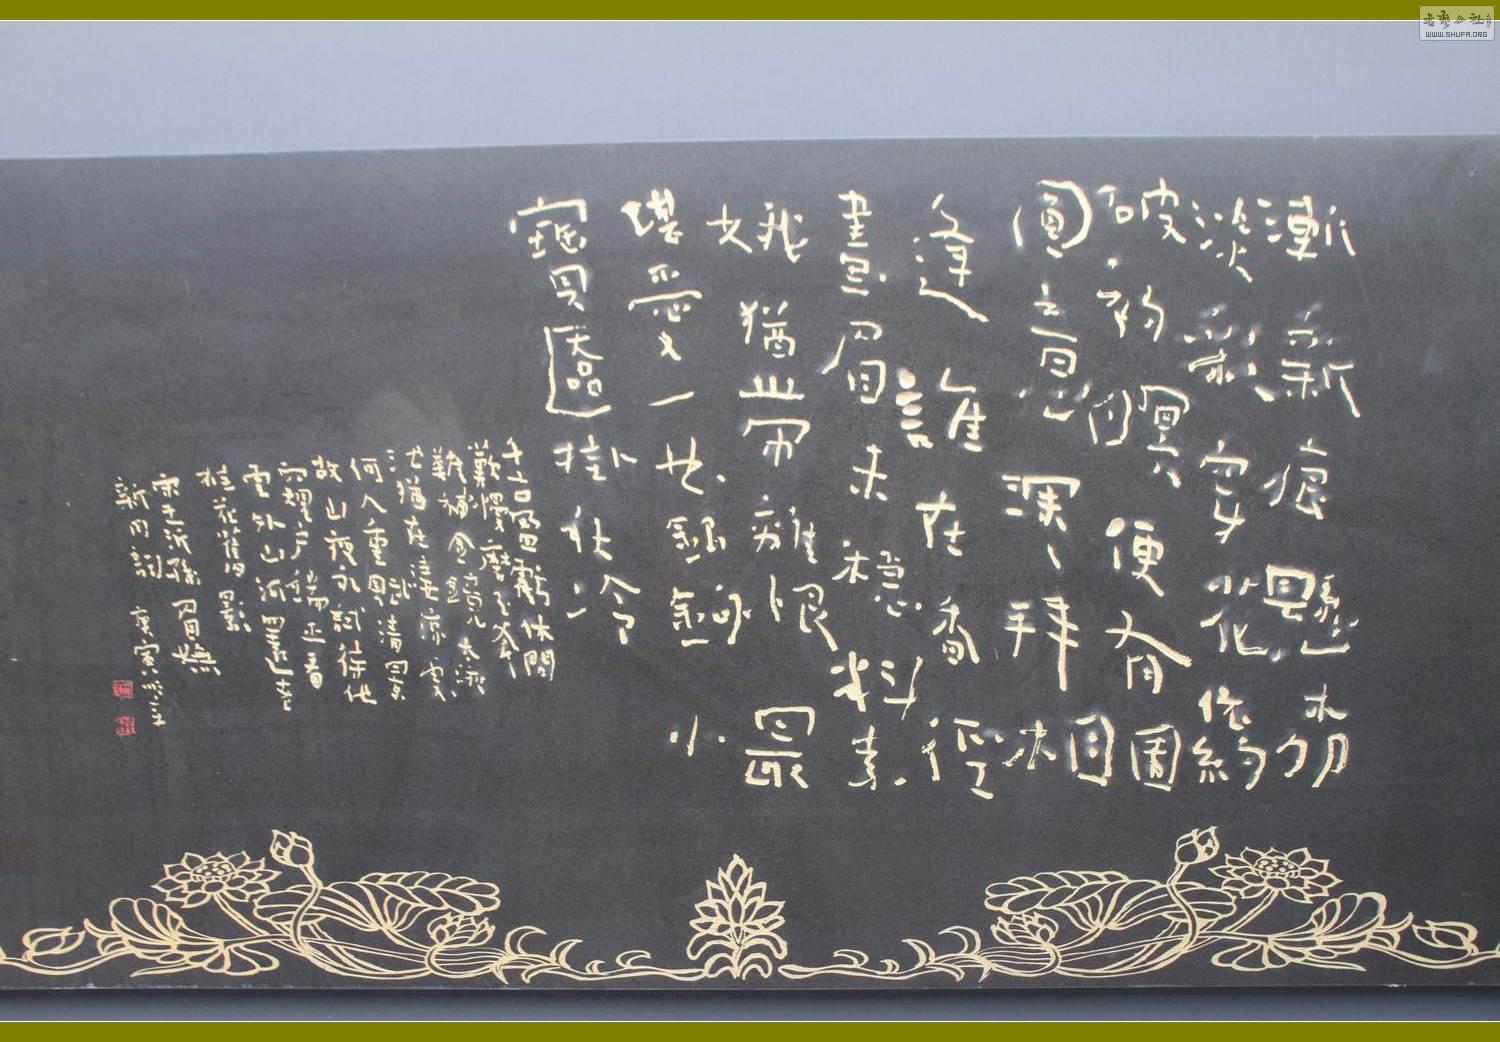 漸新痕懸柳
淡彩穿花依約
破初暝便有團
圓意深深拜相
逢誰在香徑
畫眉未穩料素
娥猶帶離恨最
堪愛一曲銀鉤小
寶匳掛秋冷
千古盈虧休問
歎慢磨玉斧
難補金鏡太液
池猶在淒涼處
何人重賦清景
故山夜永試待他
窺户端正看
雲外山河還老
桂花舊影
宋王沂孫眉嫵
新月詞 庚寅
WWW.SHUFA.ORG